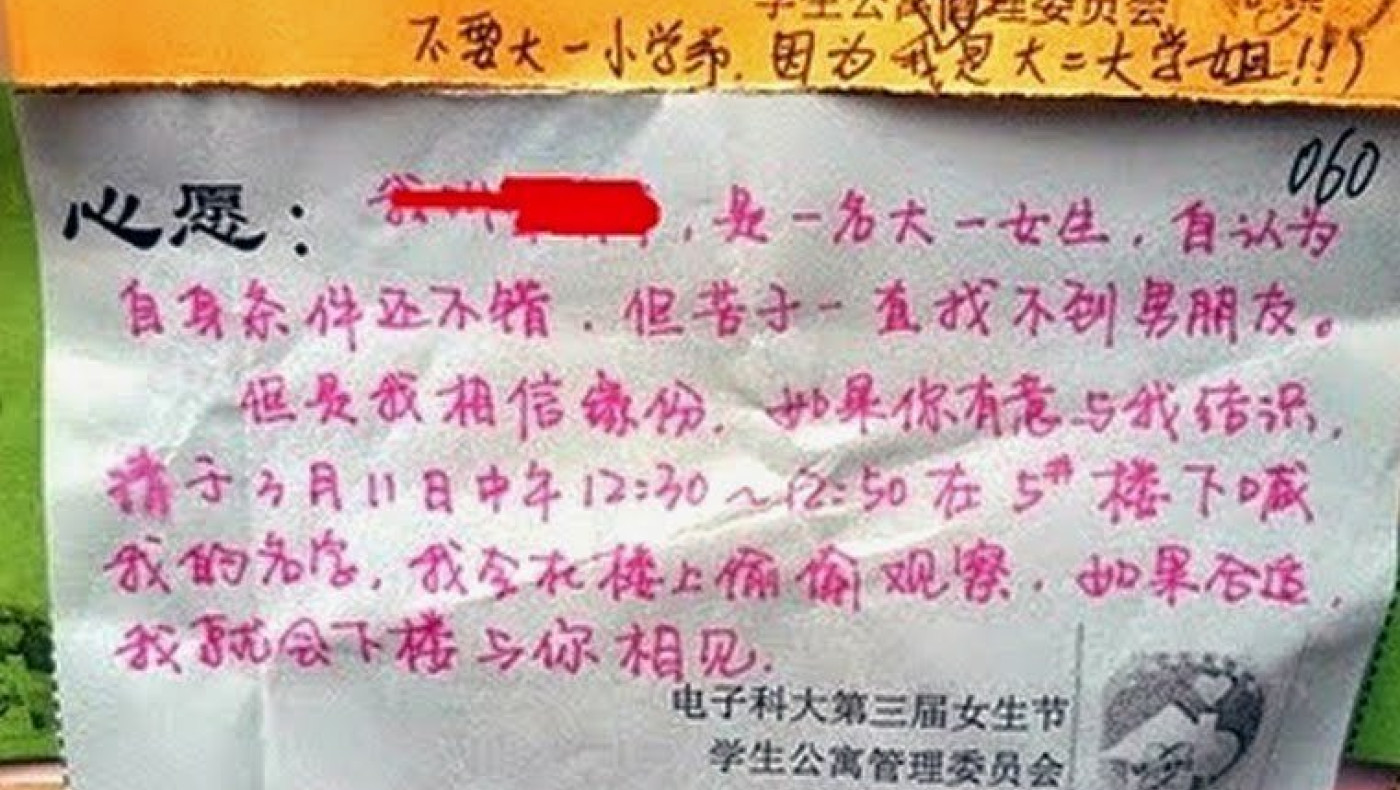 学生公寓管理委员会
不要大一小学弟.因为我是大二大学姐!!)
060
心愿: 我叫 ,是一名大一女生,自认为
自身条件还不错.但苦于一直找不到男朋友。
但是我相信缘份.如果你有意与我结识,
请于3月11日中午12:30~12:50在5#楼下喊
我的名字,我会在楼上偷偷观察.如果合适,
我就会下楼与你相见.
电子科大第三届女生节
学生公寓管理委员会